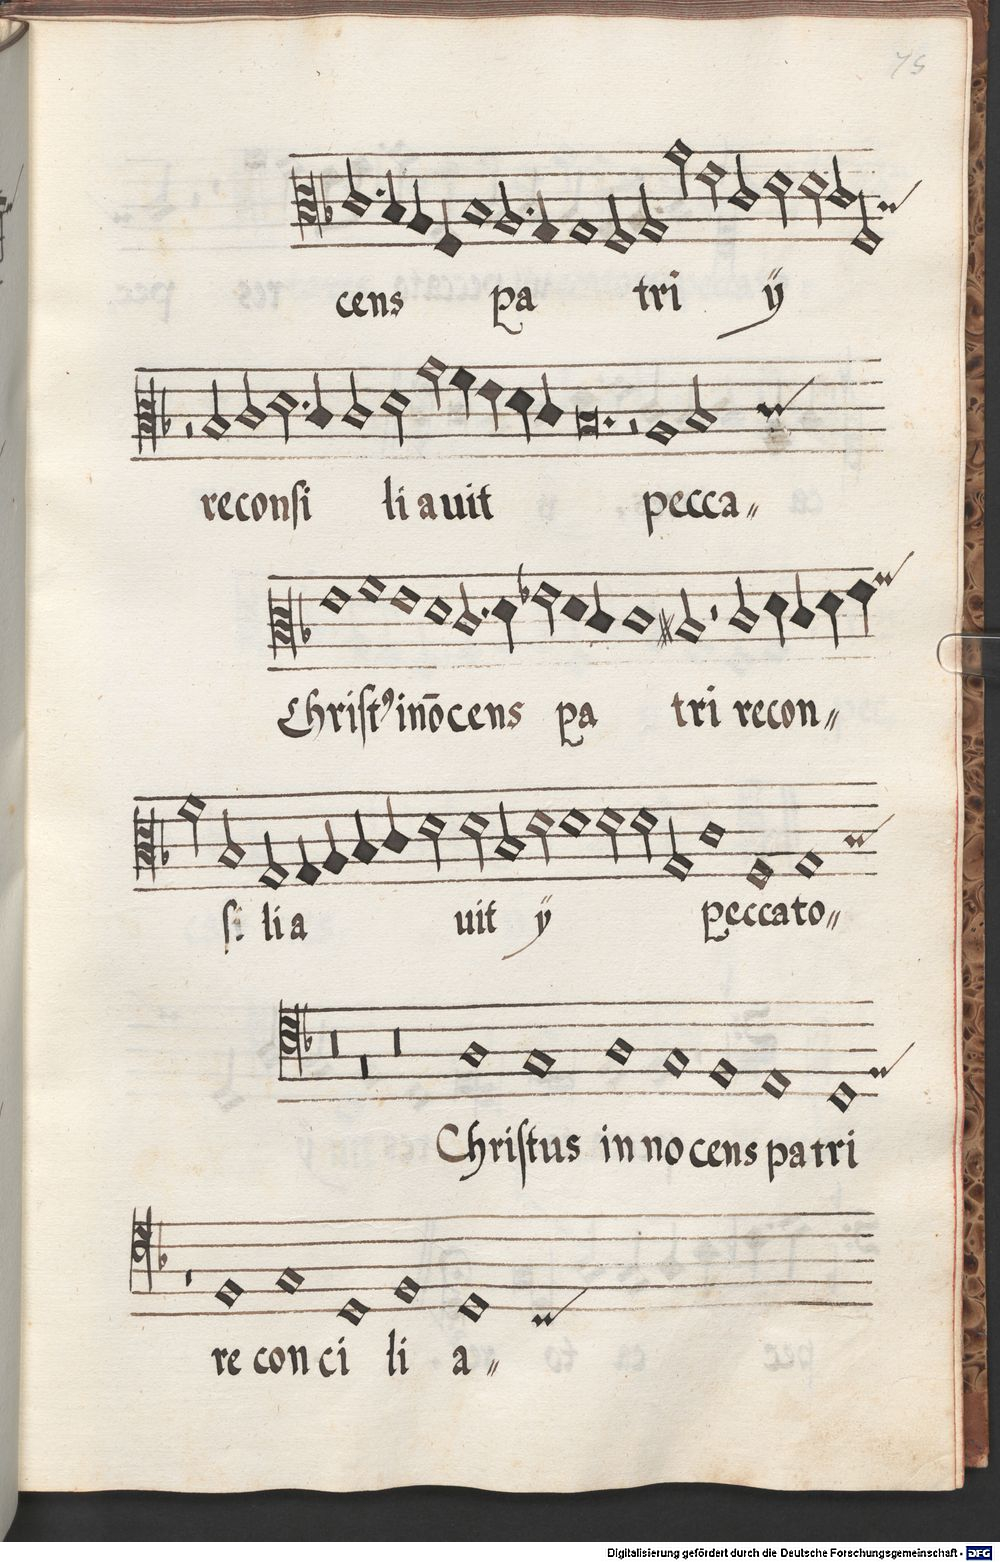 75
cens pa tri ÿ
reconsi li auit pecca〃
Christꝰ inōcens pa tri recon〃
si lia uit ÿ peccato〃
Christus in no cens pa tri
re con ci li a〃
Digitalisierung gefördert durch die Deutsche Forschungsgemeinschaft - DFG